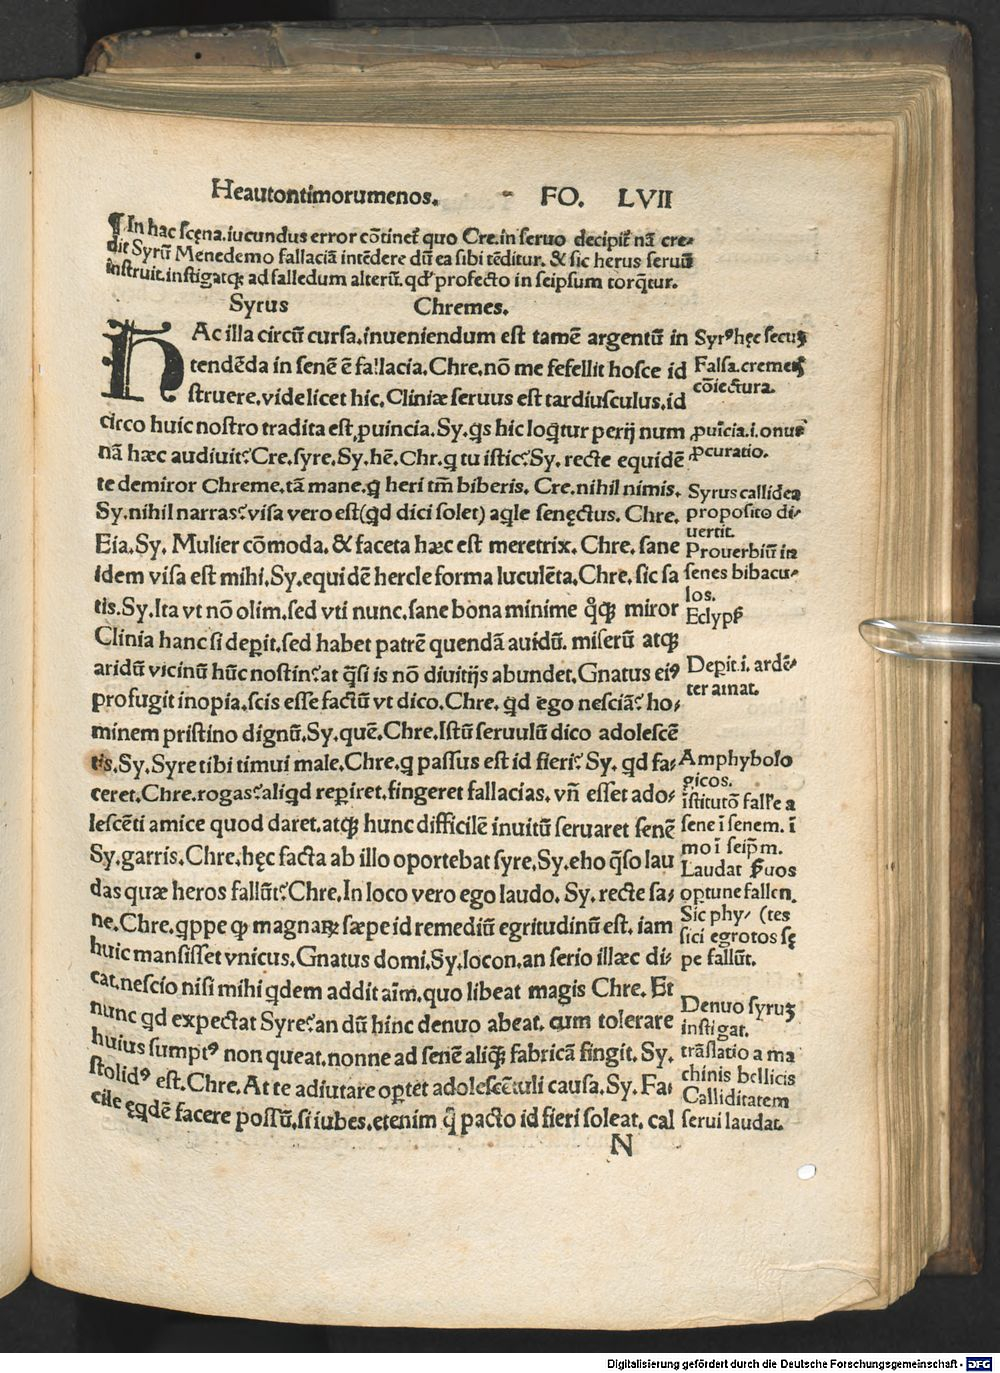 Heautontimorumenos. FO. LVII
¶ In hac scęna. iucundus error cōtinet᷑ quo Cre. in seruo decipit᷑ nā cre⸗
dit Syrū Menedemo fallaciā intēdere dū ea sibi tēditur. & sic herus seruū
instruit. instigatqꝫ ad falledum alterū. qđ profecto in seipsum torq̄tur.
Syrus Chremes.
HAc illa circū cursa. inueniendum est tamē argentū in
tendēda in senē ē fallacia. Chre. nō me fefellit hosce id
struere. videlicet hic. Cliniæ seruus est tardiusculus. id
circo huic nostro tradita est, ꝓuincia. Sy. q̇s hic loq̄tur perij num
nā hæc audiuit? Cre. syre. Sy. hē. Chr. q̇ tu istic? Sy. recte equidē
te demiror Chreme. tā mane. q̇ heri tm̄ biberis. Cre. nihil nimis.
Sy. nihil narras? visa vero est (qđ dici solet) aq̇le senęctus. Chre.
Eia. Sy. Mulier cōmoda. & faceta hæc est meretrix. Chre. sane
idem visa est mihi. Sy. equidē hercle forma luculēta. Chre. sic sa
tis. Sy. Ita vt nō olim. sed vti nunc. sane bona minime q̊qꝫ miror
Clinia hanc si deꝑit. sed habet patrē quendā auidū. miserū atqꝫ
aridū vicinū hūc nostin? at q̄si is nō diuitijs abundet. Gnatus eiꝰ
profugit inopia. scis esse factū vt dico. Chre. qđ ego nesciā? ho⸗
minem pristino dignū. Sy. quē. Chre. Istū seruulū dico adolescē
tis. Sy. Syre tibi timui male. Chre. q̇ passus est id fieri? Sy. qđ fa⸗
ceret. Chre. rogas? aliqđ reꝑiret. fingeret fallacias. vn̄ esset ado⸗
lescēti amice quod daret. atqꝫ hunc difficilē inuitū seruaret senē
Sy. garris. Chre. hęc facta ab illo oportebat syre. Sy. eho q̄so lau
das quæ heros fallūt? Chre. In loco vero ego laudo. Sy. recte sa⸗
ne. Chre. q̇ppe qꝫ magnaꝝ sæpe id remediū egritudinū est. iam
huic mansisset vnicus. Gnatus domi. Sy. Iocon. an serio illæc di⸗
cat. nescio nisi mihi q̇dem addit aīm. quo libeat magis Chre. Et
nunc qđ expectat Syre? an dū hinc denuo abeat. cum tolerare
huius sumptꝰ non queat. nonne ad senē aliq̄ fabricā fingit. Sy.
stolidꝰ est. Chre. At te adiutare oꝑtet adolescētuli causa. Sy. Fa⸗
cile ęq̇dē facere possū. si iubes. etenim q̊ pacto id fieri soleat. cal
N
Syrꝰ hęc secuꝫ
Falsa. cremetꝭ
cōiectura.
ꝓuīcia. i. onus
ꝓcuratio.
Syrus callidea
proposito di⸗
uertit.
Prouerbiū in
senes bibacu⸗
los.
Eclypꝭ
Deꝑit. i. ardē⸗
ter amat.
Amphybolo
gicos.
īstitutō falľe a
sene ī senem. ī
mo ī seip̄m.
Laudat ẜuos
oꝑtune fallen.
Sic phy⸗ (tes
sici egrotos sę
pe fallūt.
Denuo syruꝫ
instigat.
trāslatio a ma
chinis bellicis
Calliditatem
serui laudat.
Digitalisierung gefördert durch die Deutsche Forschungsgemeinschaft - DFG